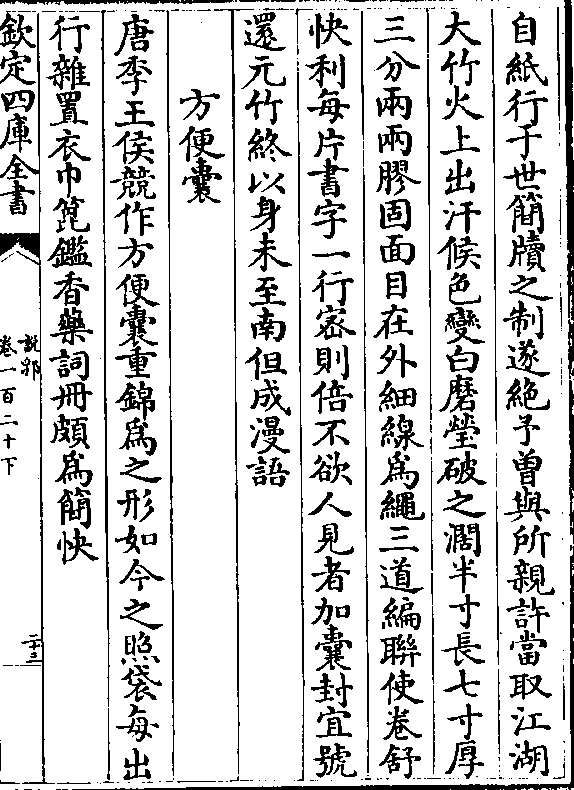 自紙行于世簡牘之制遂絶予曽與所親許當取江湖
大竹火上出汗候色變白磨瑩破之濶半寸長七寸厚
三分兩兩膠固面目在外細線為繩三道編聯使卷舒
快利每片書字一行密則倍不欲人見者加囊封宜號
還元竹終以身未至南但成漫語
方便囊
唐季王侯競作方便囊重錦為之形如今之照袋每出
行雜置衣巾篦鑑香藥詞冊頗為簡快
欽定四庫全書
說郛
卷一百二十下
二十三